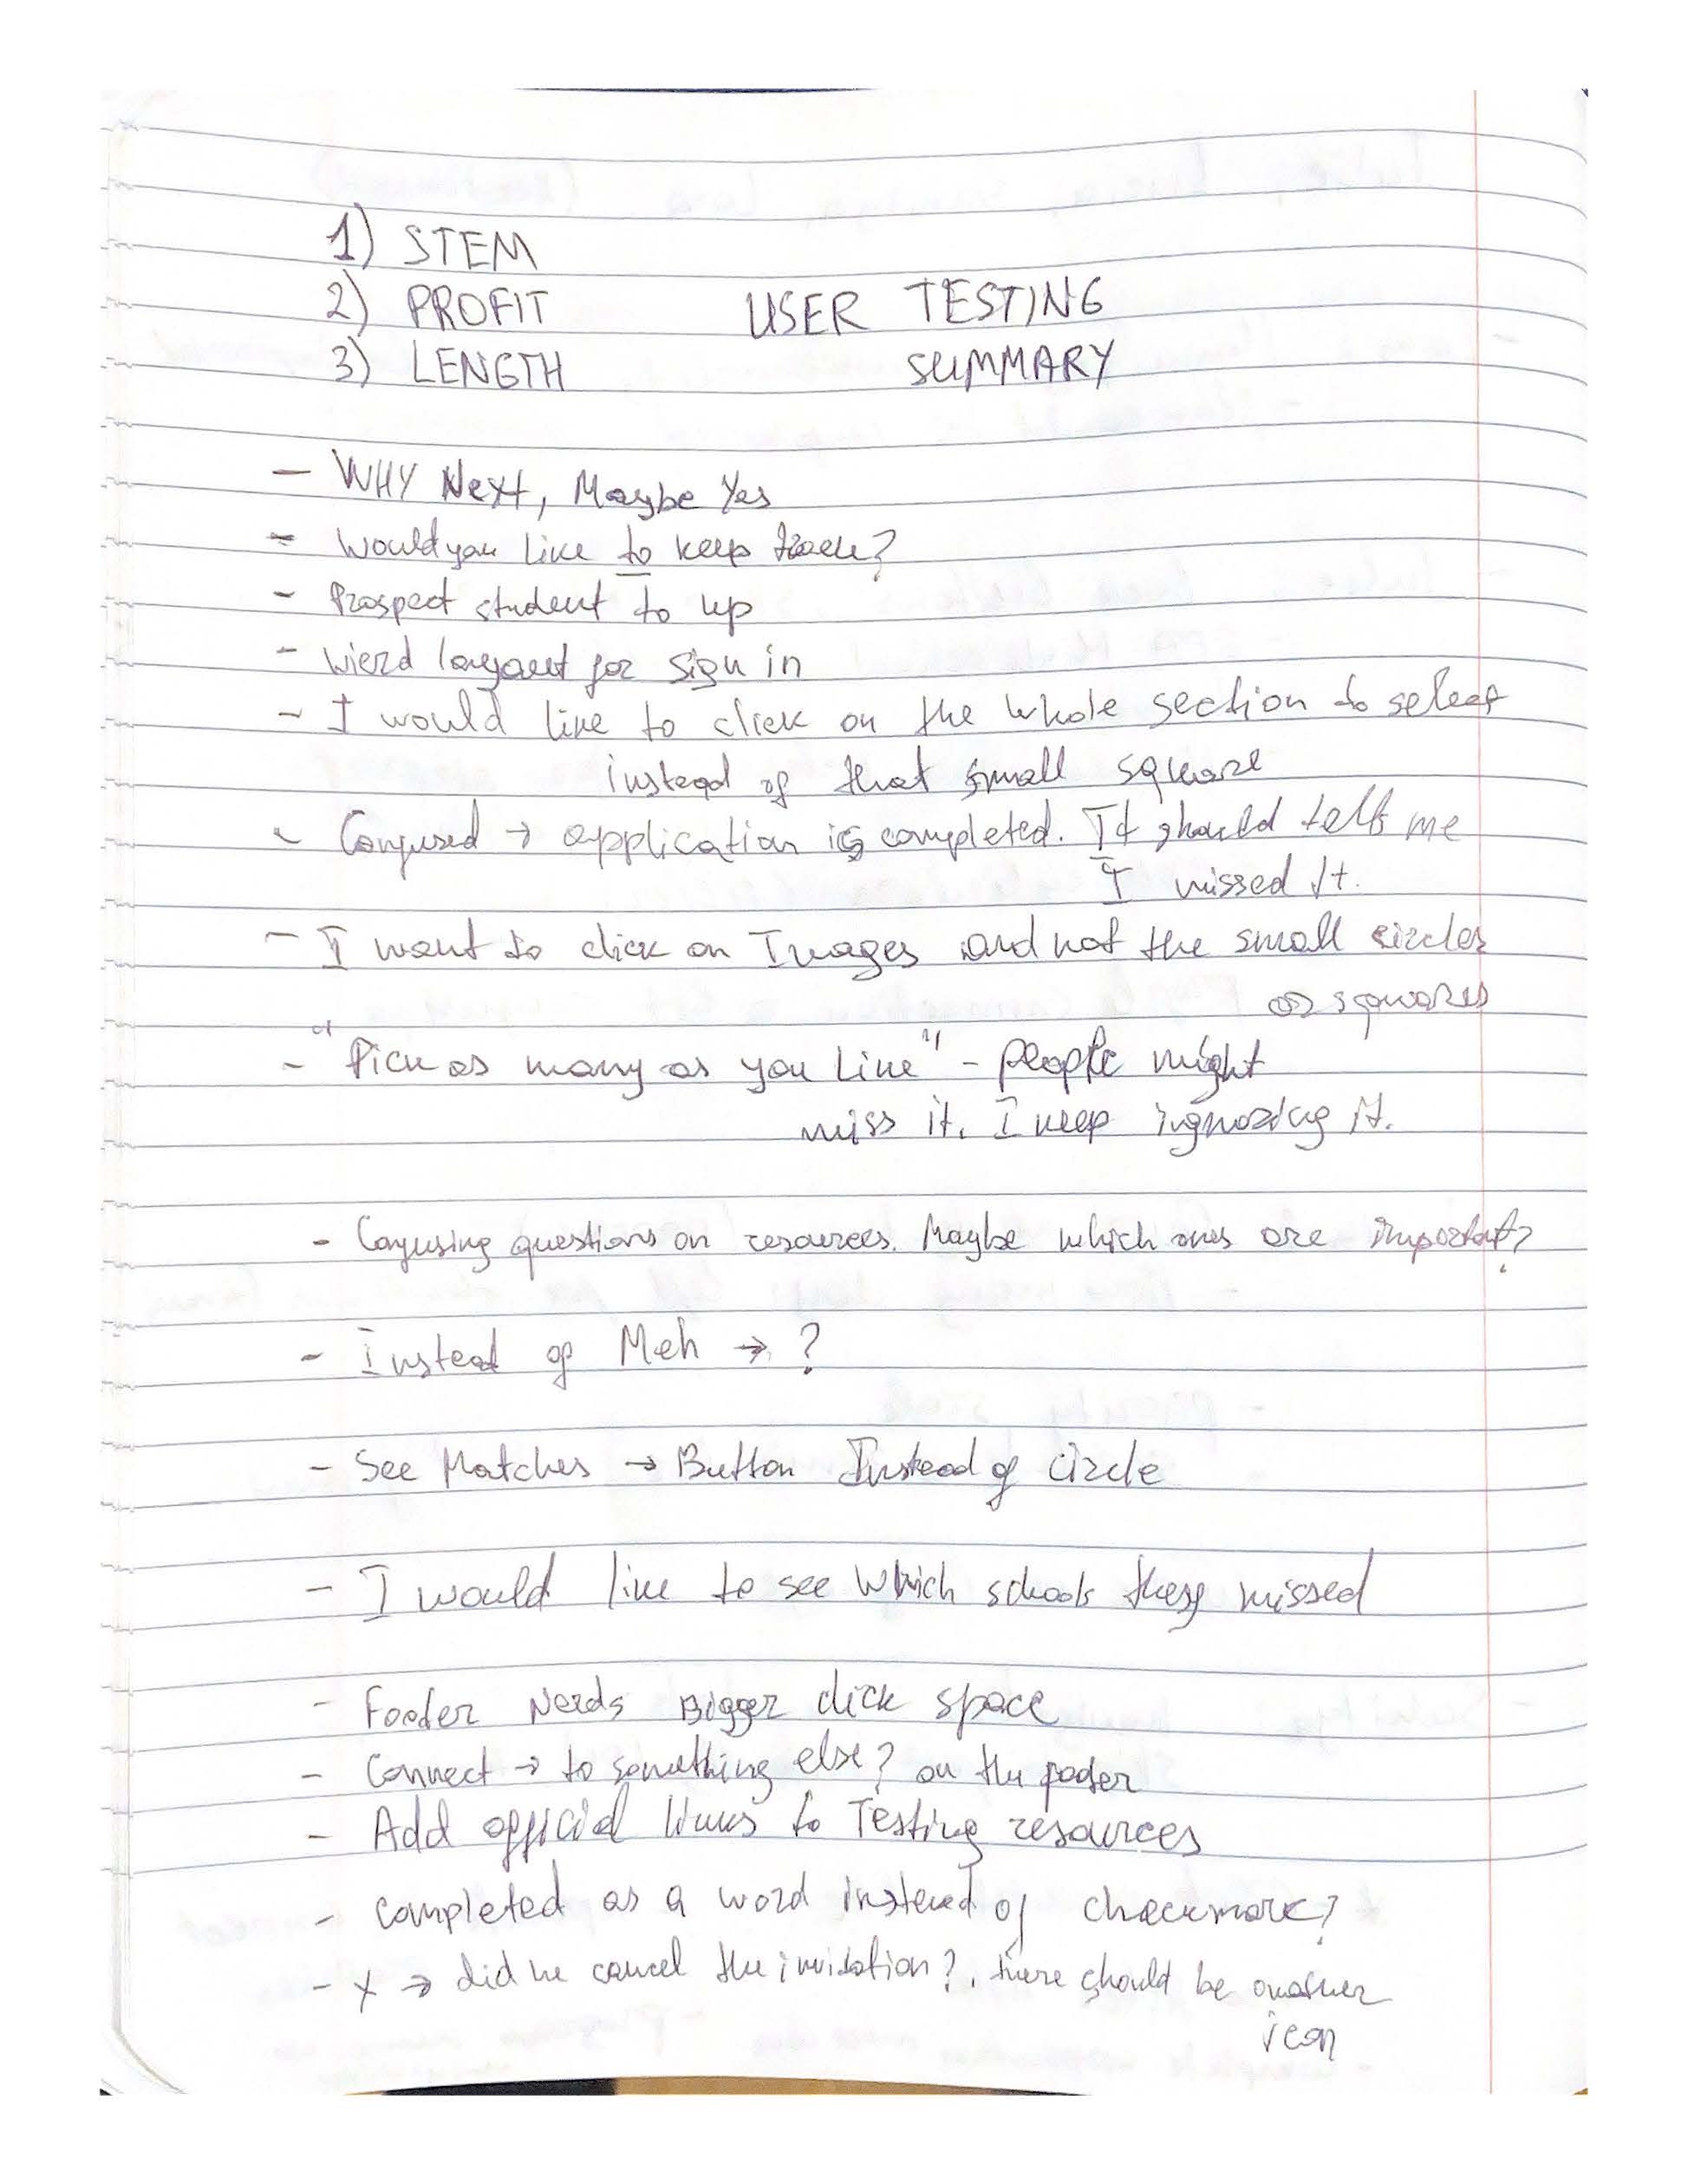 1) STEM
2) PROFIT USER TESTING
3) LENGTH SUMMARY
- WHY Next, Maybe Yes
- Would you like to keep track?
- Prospect student to up
- Wierd layout for sign in
- I would like to click on the whole section to select
instead of that small square
- Confused → application is completed. It should tell me
I missed it.
- I want to click on Images and not the small circles
or squares
- "Pick as many as you like" - people might
miss it. I keep ignoring it.
- Confusing questions on resources. Maybe which ones are important?
- Instead of Meh → ?
- See Matches → Button Instead of circle
- I would like to see which schools they missed
- Footer Needs Bigger click space
- Connect → to something else? on the footer
- Add official links to Testing resources
- Completed as a word instead of checkmark?
- X → did he cancel the invitation?. there should be another
icon